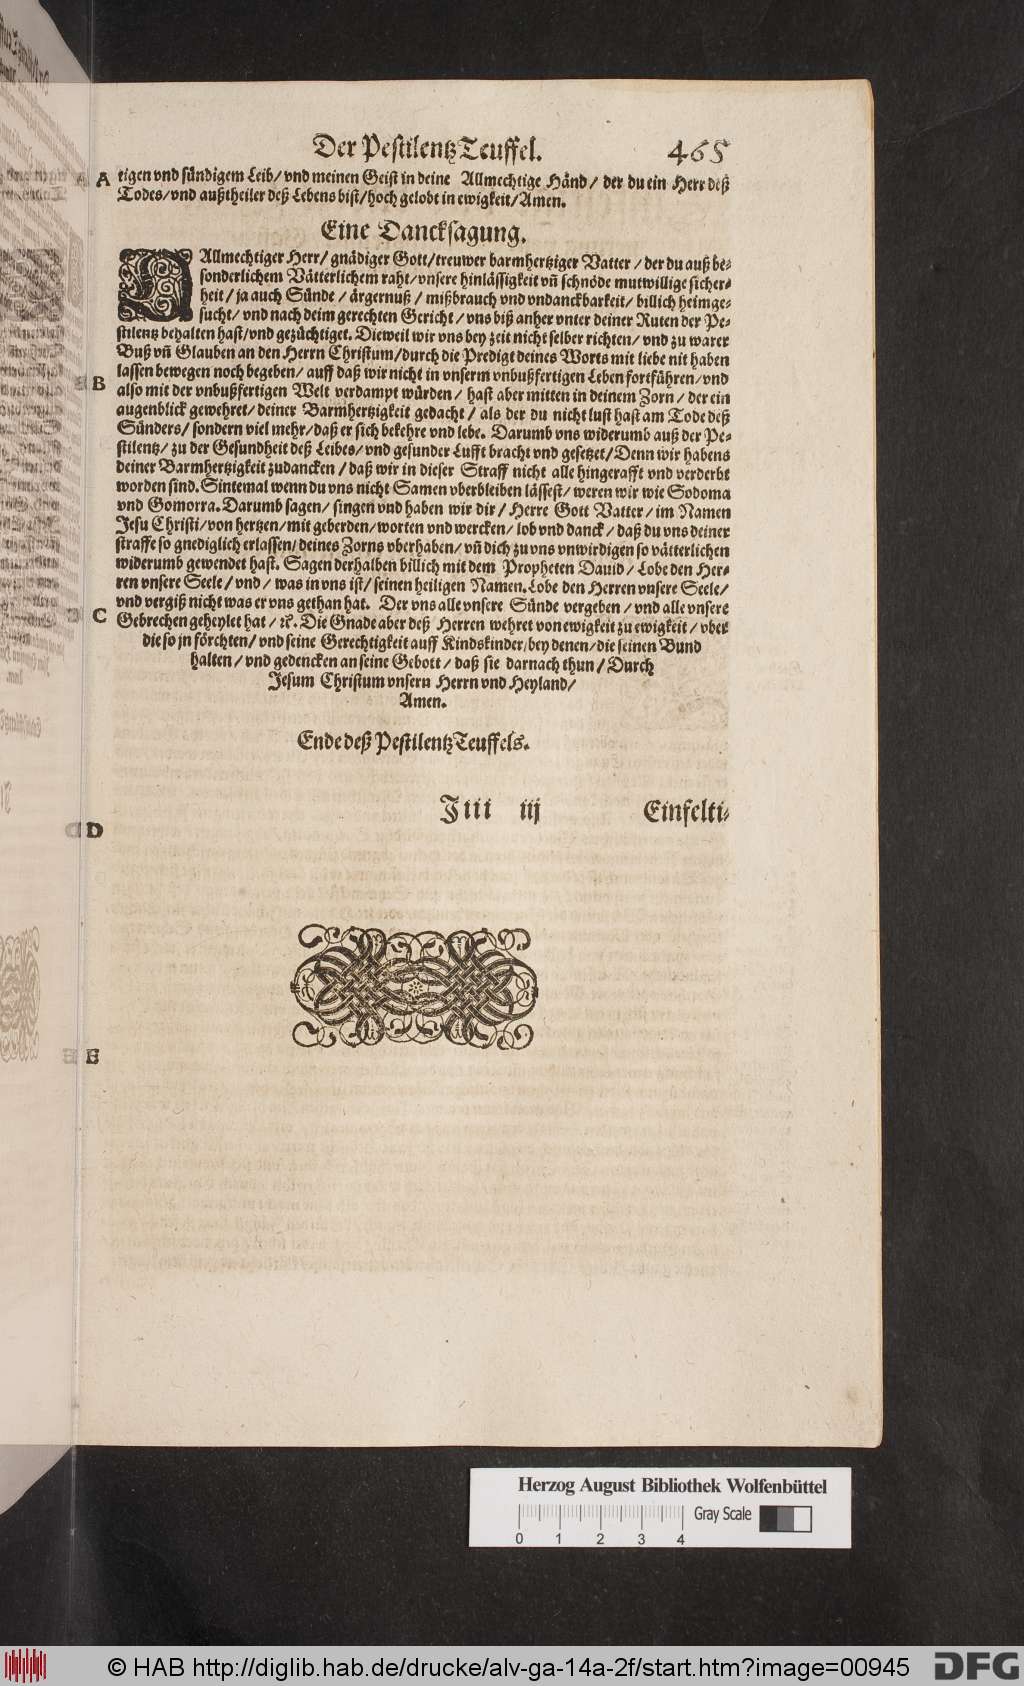 Der PestilentzTeuffel. 465
A tigen vnd sündigem Leib/ vnd meinen Geist in deine Allmechtige Händ/ der du ein Herr deß
Todes/ vnd außtheiler deß Lebens bist/ hoch gelobt in ewigkeit/ Amen.
Eine Dancksagung.
Allmechtiger Herr/ gnädiger Gott/ treuwer barmhertziger Vatter/ der du auß be-
sonderlichem Vätterlichem raht/ vnsere hinlässigkeit vñ schnöde mutwillige sicher-
heit/ ja auch Sünde/ ärgernuß/ mißbrauch vnd vndanckbarkeit/ billich heimge-
sucht/ vnd nach deim gerechten Gericht/ vns biß anher vnter deiner Ruten der Pe-
stilentz behalten hast/ vnd gezüchtiget. Dieweil wir vns bey zeit nicht selber richten/ vnd zu warer
Buß vñ Glauben an den Herrn Christum/ durch die Predigt deines Worts mit liebe nit haben
B lassen bewegen noch begeben/ auff daß wir nicht in vnserm vnbußfertigen Leben fortführen/ vnd
also mit der vnbußfertigen Welt verdampt würden/ hast aber mitten in deinem Zorn/ der ein
augenblick gewehret/ deiner Barmhertzigkeit gedacht/ als der du nicht lust hast am Tode deß
Sünders/ sondern viel mehr/ daß er sich bekehre vnd lebe. Darumb vns widerumb auß der Pe-
stilentz/ zu der Gesundheit deß Leibes/ vnd gesunder Lufft bracht vnd gesetzet/ Denn wir habens
deiner Barmhertzigkeit zudancken/ daß wir in dieser Straff nicht alle hingerafft vnd verderbt
worden sind. Sintemal wenn du vns nicht Samen vberbleiben lässest/ weren wir wie Sodoma
vnd Gomorra. Darumb sagen/ singen vnd haben wir dir/ Herre Gott Vatter/ im Namen
Jesu Christi/ von hertzen/ mit geberden/ worten vnd wercken/ lob vnd danck/ daß du vns deiner
straffe so gnediglich erlassen/ deines Zorns vberhaben/ vñ dich zu vns vnwirdigen so vätterlichen
widerumb gewendet hast. Sagen derhalben billich mit dem Propheten Dauid/ Lobe den Her-
ren vnsere Seele/ vnd/ was in vns ist/ seinen heiligen Namen. Lobe den Herren vnsere Seele/
vnd vergiß nicht was er vns gethan hat. Der vns alle vnsere Sünde vergeben/ vnd alle vnsere
C Gebrechen geheylet hat/ ꝛc. Die Gnade aber deß Herren wehret von ewigkeit zu ewigkeit/ vber
die so jn förchten/ vnd seine Gerechtigkeit auff Kindskinder/ bey denen/ die seinen Bund
halten/ vnd gedencken an seine Gebott/ daß sie darnach thun/ Durch
Jesum Christum vnsern Herrn vnd Heyland/
Amen.
Ende deß PestilentzTeuffels.
Jiii iij Einfelti-
D
E
Herzog August Bibliothek Wolfenbüttel
Gray Scale
0 1 2 3 4
© HAB http://diglib.hab.de/drucke/alv-ga-14a-2f/start.htm?image=00945 DFG